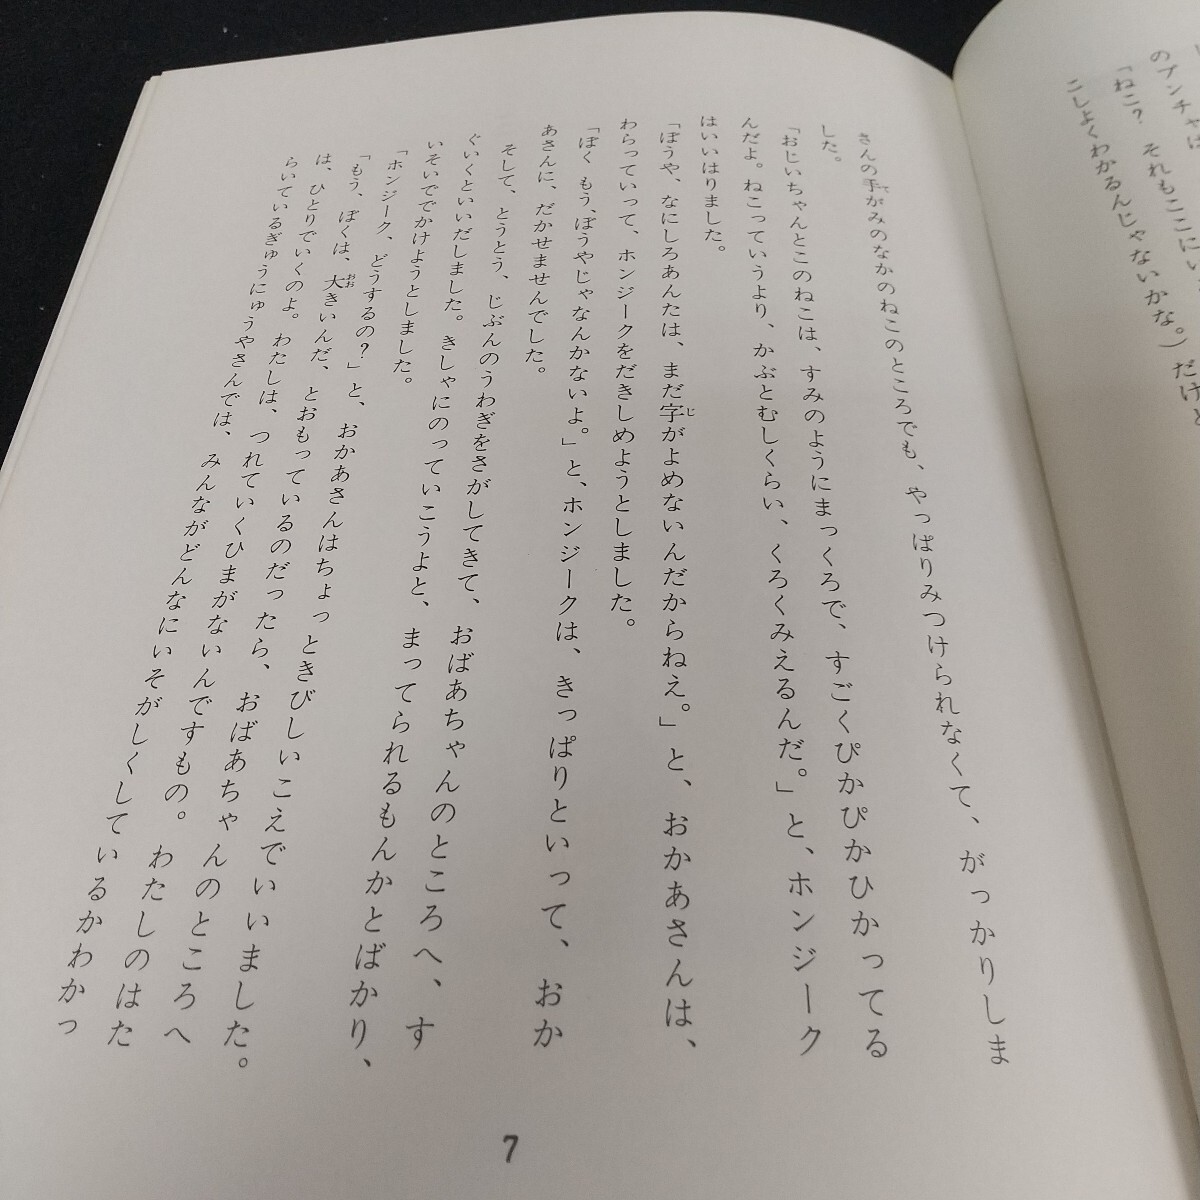 のブンチャは
「ねこ？　それもここにい
こしよくわかるんじゃないかな。）だけど
さんの手がみのなかのねこのところでも、やっぱりみつけられなくて、がっかりしま
した。
「おじいちゃんとこのねこは、すみのようにまっくろで、すごくぴかぴかひかってる
んだよ。ねこっていうより、かぶとむしくらい、くろくみえるんだ。」と、ホンジーク
はいいはりました。
「ぼうや、なにしろあんたは、まだ字がよめないんだからねえ。」と、おかあさんは、
わらっていって、ホンジークをだきしめようとしました。
「ぼく もう、ぼうやじゃなんかないよ。」と、ホンジークは、きっぱりといって、おか
あさんに、だかせませんでした。
そして、とうとう、じぶんのうわぎをさがしてきて、おばあちゃんのところへ、す
ぐいくといいだしました。きしゃにのっていこうよと、まってられるもんかとばかり、
いそいででかけようとしました。
「ホンジーク、どうするの？」と、おかあさんはちょっときびしいこえでいいました。
「もう、ぼくは、大きいんだ、とおもっているのだったら、おばあちゃんのところへ
は、ひとりでいくのよ。わたしは、つれていくひまがないんですもの。わたしのはた
らいているぎゅうにゅうやさんでは、みんながどんなにいそがしくしているかわかっ
7